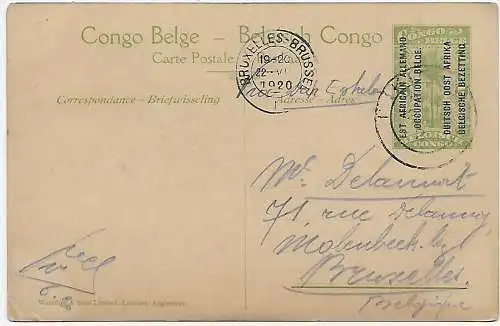 Congo Belge – Belgisch Congo
Carte Postale
BRUXELLES-BRUSSEL
19-20
1920
CONGO BELGE
EST AFRICAIN ALLEMAND
OCCUPATION BELGE.
DUITSCH OOST AFRIKA
BELGISCHE BEZETTING
CONGO
Correspondance – Briefwisseling
Adresse – Adres
Mr Delannoit
71 rue Delaunoy
Molenbeek
Bruxelles.
Belgique
Waterlow & Sons Limited, Londres, Angleterre.